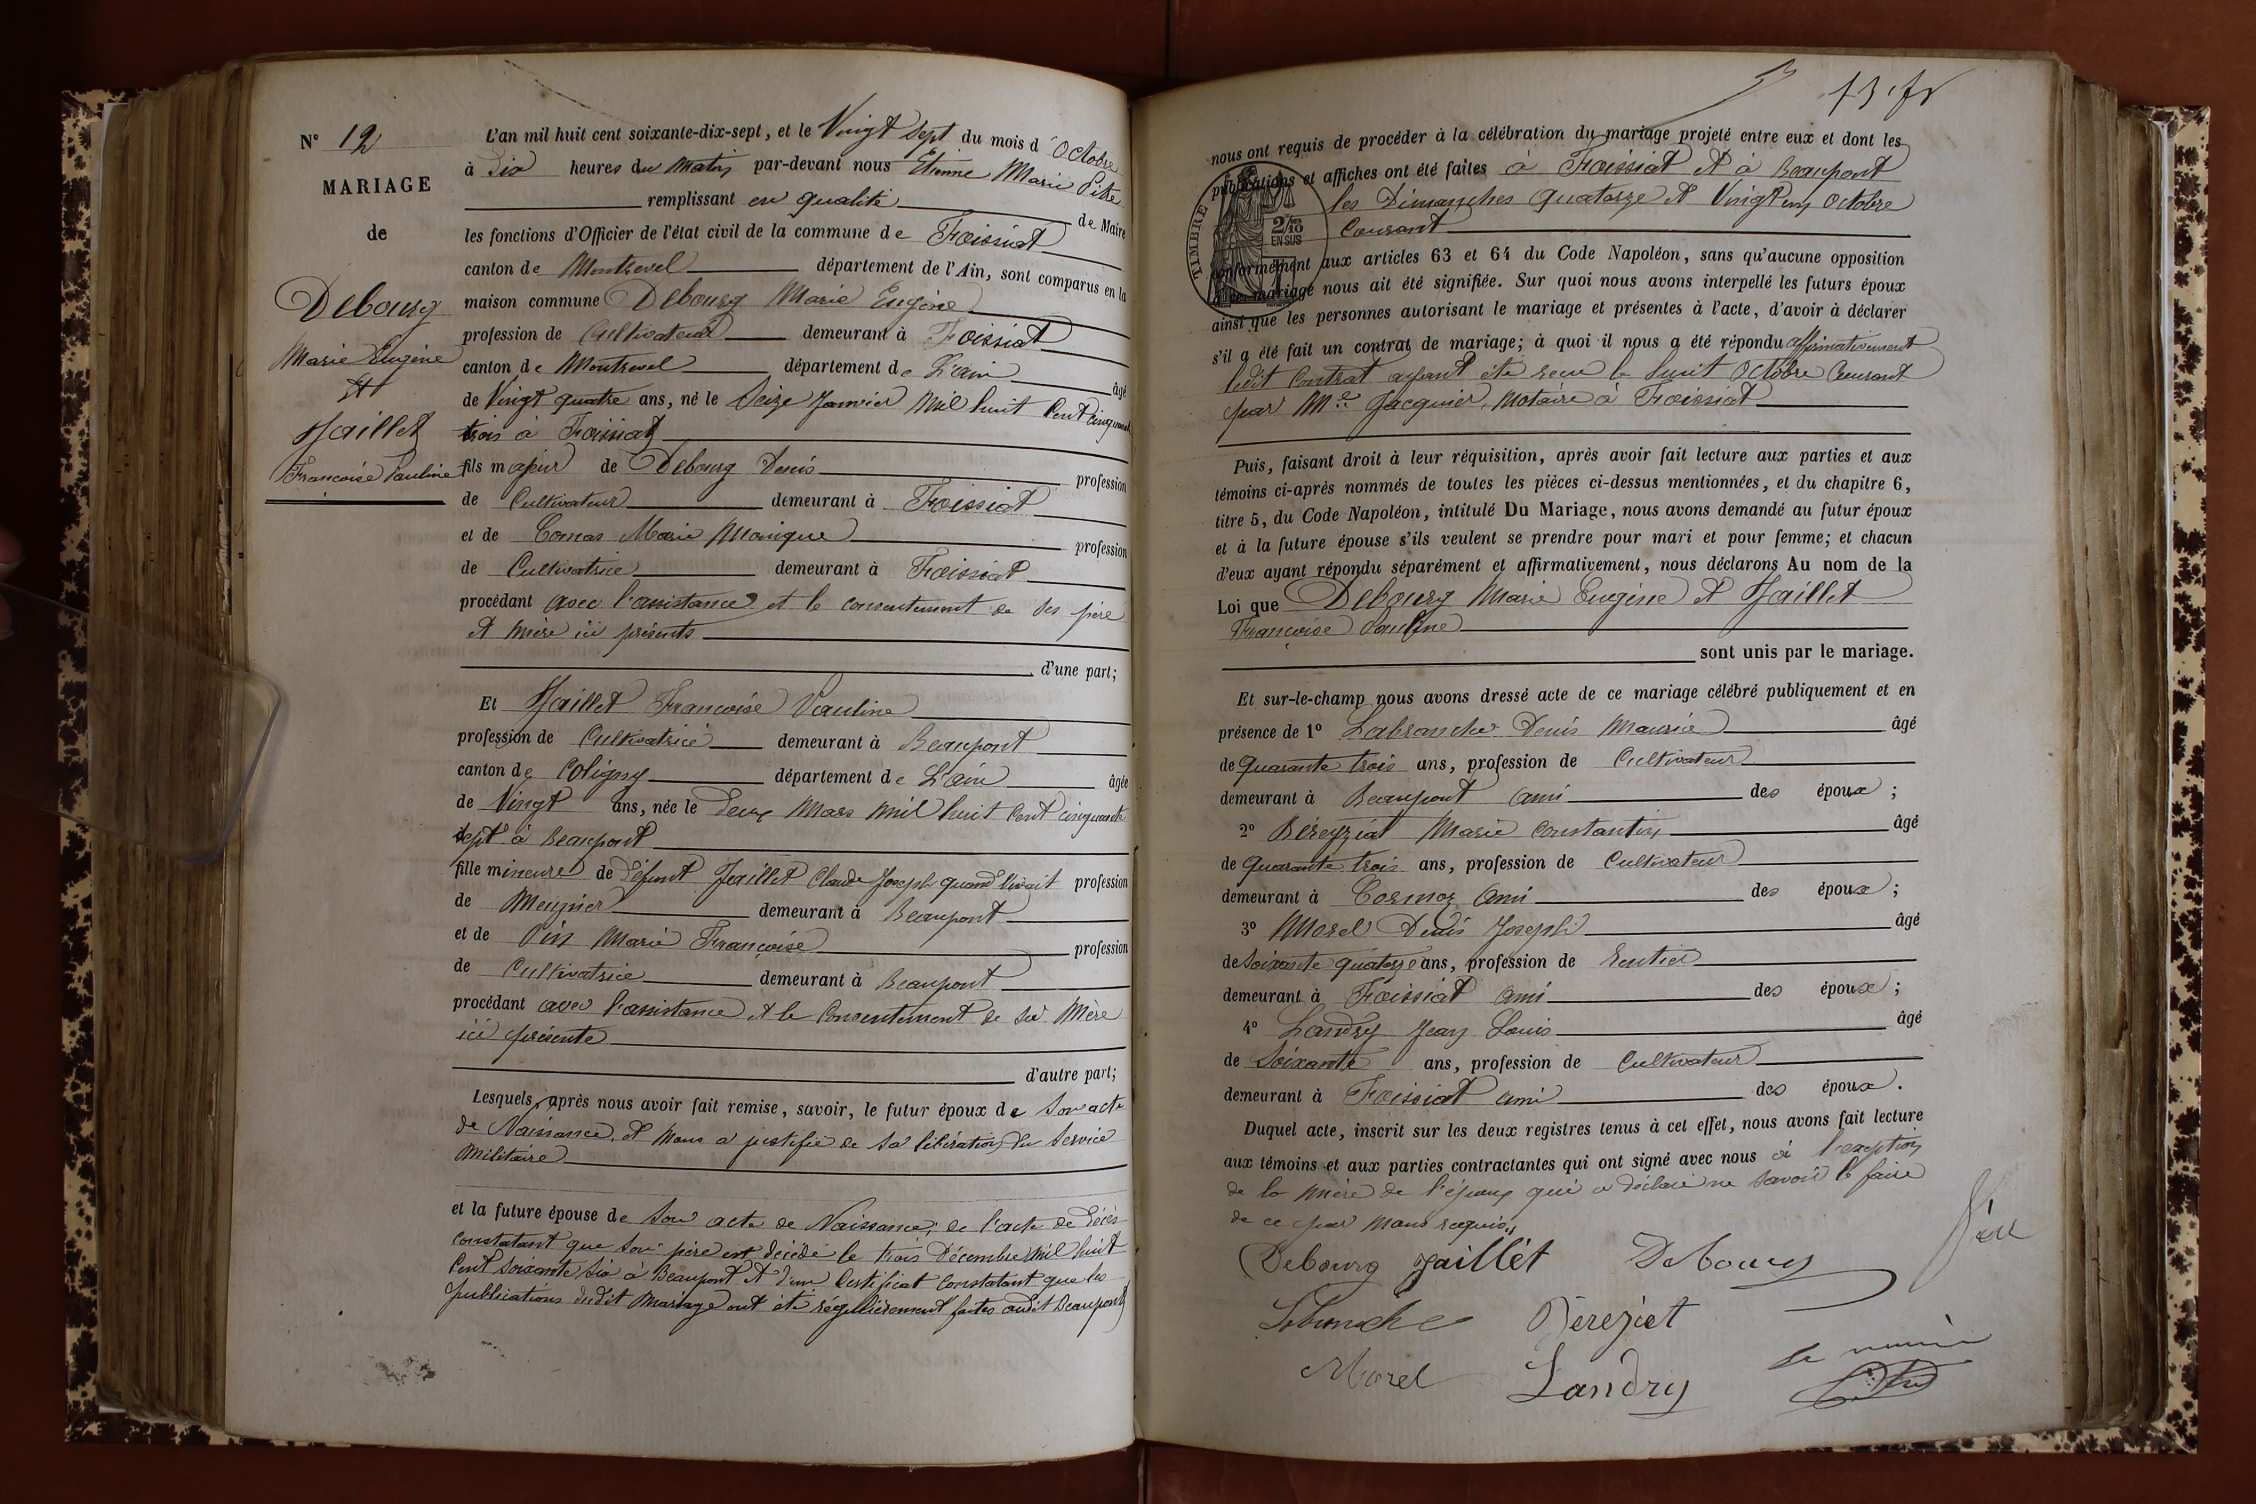 N° 12
MARIAGE
de
Debourg
Marie Eugène
et
Jaillet
Françoise Pauline
L'an mil huit cent soixante-dix-sept, et le Vingt Sept du mois d'Octobre
à Dix heures du Matin par-devant nous Etienne Marie Pitre
remplissant en qualité de Maire
les fonctions d'Officier de l'état civil de la commune de Foissiat
canton de Montrevel département de l'Ain, sont comparus en la
maison commune Debourg Marie Eugène
profession de Cultivateur demeurant à Foissiat
canton de Montrevel département de L'ain âgé
de Vingt quatre ans, né le Seize Janvier Mil huit Cent cinquante
trois à Foissiat
fils majeur de Debourg Denis profession
de Cultivateur demeurant à Foissiat
et de Comas Marie Monique profession
de Cultivatrice demeurant à Foissiat
procédant avec l'assistance et le consentement de ses père
et mère ici présents
d'une part;
Et Jaillet Françoise Pauline
profession de Cultivatrice demeurant à Beaupont
canton de Coligny département de L'ain âgée
de Vingt ans, née le Deux Mars Mil huit Cent cinquante
Sept à Beaupont
fille mineure de Défunt Jaillet Claude Joseph quand vivait profession
de Meunier demeurant à Beaupont
et de Pin Marie Françoise profession
de Cultivatrice demeurant à Beaupont
procédant avec l'assistance et le Consentement de sa Mère
ici présente
d'autre part;
Lesquels, après nous avoir fait remise, savoir, le futur époux de Son acte
de Naissance, et Nous a justifié de sa libération du Service
Militaire
et la future épouse de Son acte de Naissance, de l'acte de Décès
constatant que Son père est décédé le trois Décembre Mil huit
Cent Soixante Six à Beaupont et d'un Certificat Constatant que les
publications dudit Mariage ont été régulièrement faites audit Beaupont
nous ont requis de procéder à la célébration du mariage projeté entre eux et dont les
publications et affiches ont été faites à Foissiat et à Beaupont
les Dimanches Quatorze et Vingt un Octobre
Courant
TIMBRE
2/10
EN SUS
conformément aux articles 63 et 64 du Code Napoléon, sans qu'aucune opposition
à ce mariage nous ait été signifiée. Sur quoi nous avons interpellé les futurs époux
ainsi que les personnes autorisant le mariage et présentes à l'acte, d'avoir à déclarer
s'il a été fait un contrat de mariage; à quoi il nous a été répondu affirmativement
ledit Contrat ayant été reçu le huit Octobre Courant
par Me Jacquier, Notaire à Foissiat
Puis, faisant droit à leur réquisition, après avoir fait lecture aux parties et aux
témoins ci-après nommés de toutes les pièces ci-dessus mentionnées, et du chapitre 6,
titre 5, du Code Napoléon, intitulé Du Mariage, nous avons demandé au futur époux
et à la future épouse s'ils veulent se prendre pour mari et pour femme; et chacun
d'eux ayant répondu séparément et affirmativement, nous déclarons Au nom de la
Loi que Debourg Marie Eugène et Jaillet
Françoise Pauline
sont unis par le mariage.
Et sur-le-champ nous avons dressé acte de ce mariage célébré publiquement et en
présence de 1° Labranche Denis Maurice âgé
de Quarante trois ans, profession de Cultivateur
demeurant à Beaupont ami des époux;
2° Béréyziat Marie Constantin âgé
de Quarante trois ans, profession de Cultivateur
demeurant à Cormoz Ami des époux;
3° Morel Denis Joseph âgé
de Soixante quatorze ans, profession de Rentier
demeurant à Foissiat ami des époux;
4° Landry Jean Louis âgé
de Soixante ans, profession de Cultivateur
demeurant à Foissiat ami des époux.
Duquel acte, inscrit sur les deux registres tenus à cet effet, nous avons fait lecture
aux témoins et aux parties contractantes qui ont signé avec nous à l'exception
de la Mère de l'époux qui a déclaré ne savoir le faire
de ce par Nous requis.
Debourg Jaillet Debourg
Labranche Béréziat
Morel Landry Le maire